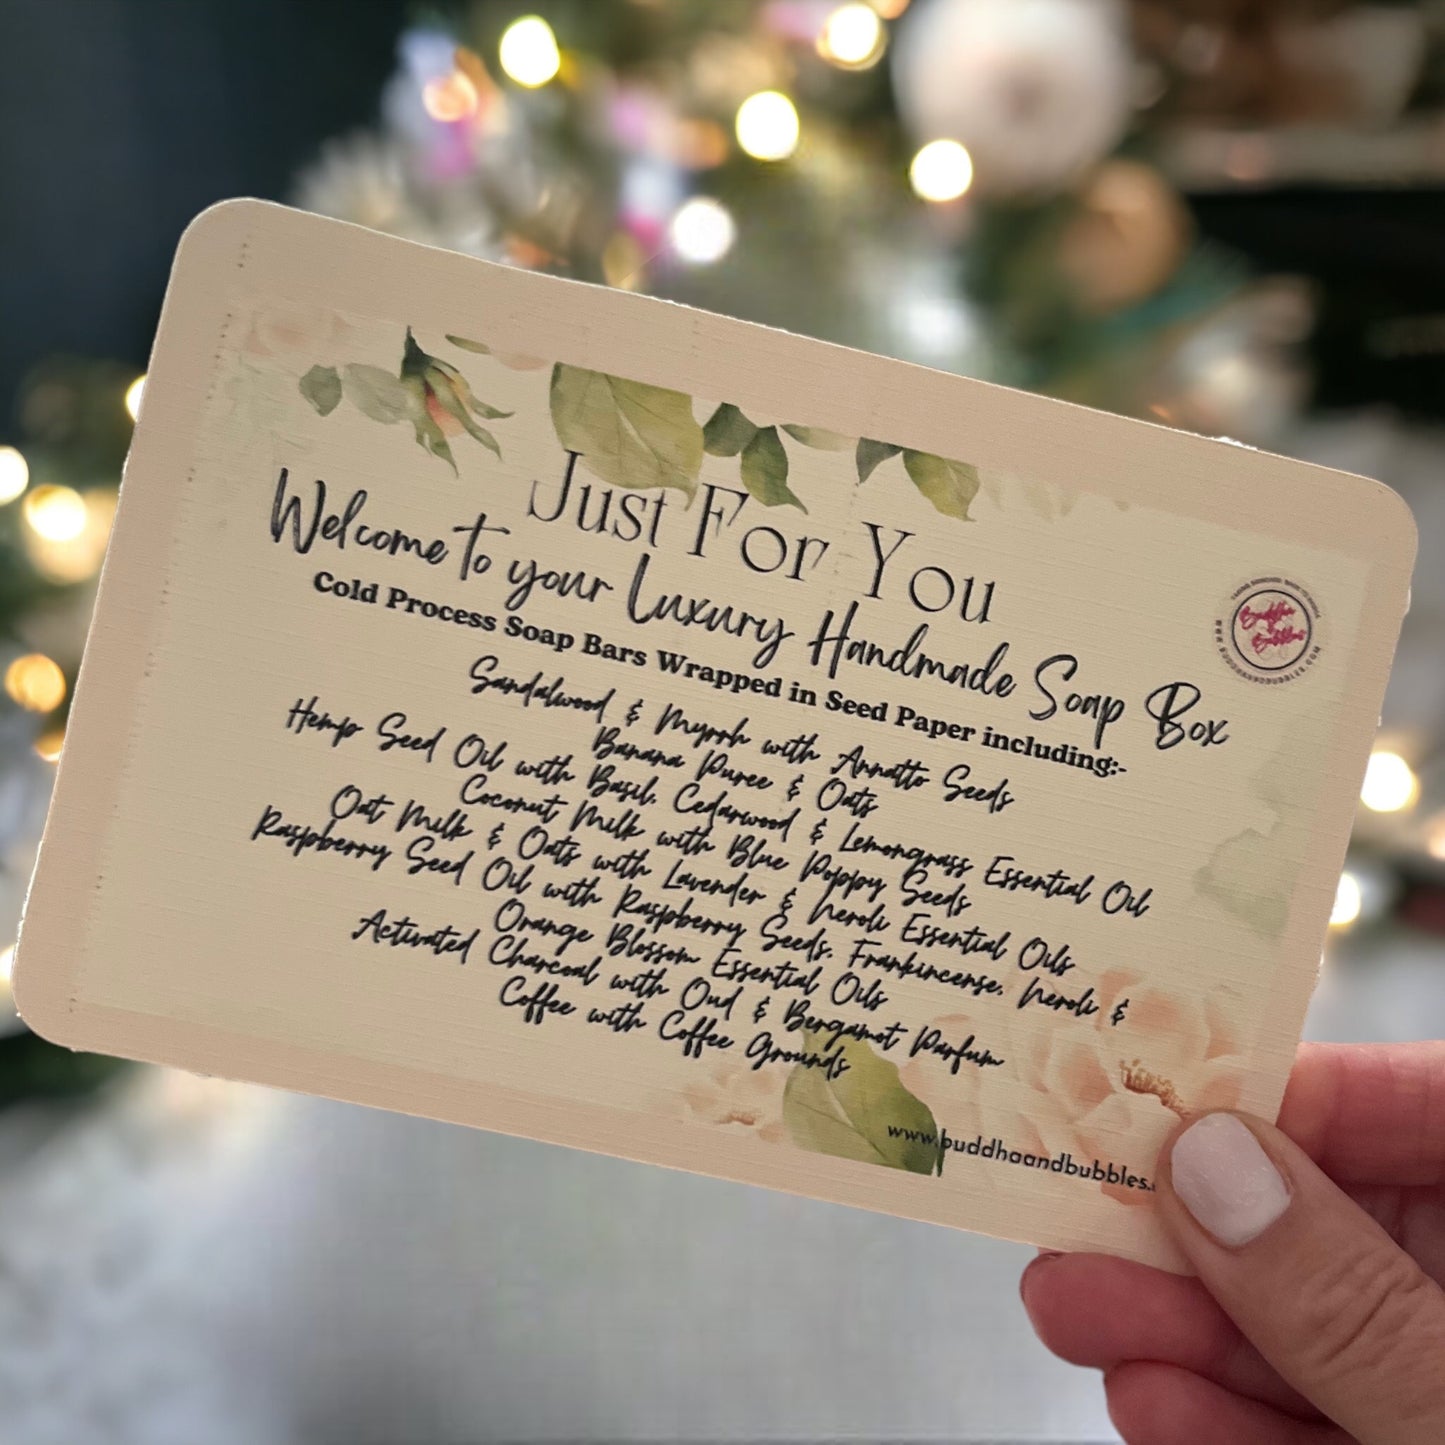 Just For You
Welcome to your Luxury Handmade Soap Box
Cold Process Soap Bars Wrapped in Seed Paper including:-
Sandalwood & Myrrh with Annatto Seeds
Banana Puree & Oats
Hemp Seed Oil with Basil, Cedarwood & Lemongrass Essential Oil
Coconut Milk with Blue Poppy Seeds
Oat Milk & Oats with Lavender & Neroli Essential Oils
Raspberry Seed Oil with Raspberry Seeds, Frankincense, Neroli &
Orange Blossom Essential Oils
Activated Charcoal with Oud & Bergamot Parfum
Coffee with Coffee Grounds
Buddha
&
Bubbles
www.buddhaandbubbles.